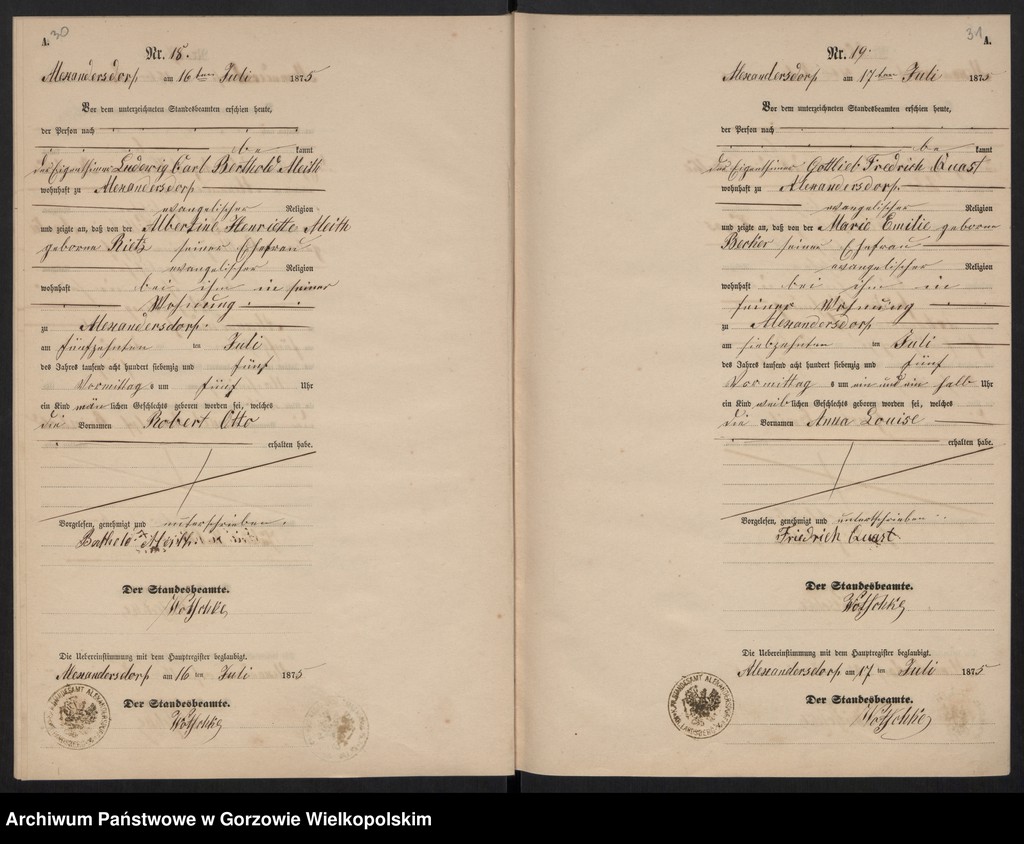 A. 30
Nr. 18.
Alexandersdorf am 16 ten Juli 1875
Vor dem unterzeichneten Standesbeamten erschien heute,
der Person nach
be kannt
der Eigenthümer Ludewig Carl Berthold Meith
wohnhaft zu Alexandersdorf
evangelischer Religion
und zeigte an, daß von der Albertine Henriette Meith
geborne Rietz seiner Ehefrau
evangelischer Religion
wohnhaft bei ihm in seiner
Wohnung
zu Alexandersdorf
am fünfzehnten ten Juli
des Jahres tausend acht hundert siebenzig und fünf
Vormittag s um fünf Uhr
ein Kind män lichen Geschlechts geboren worden sei, welches
die Vornamen Robert Otto
erhalten habe.
Vorgelesen, genehmigt und unterschrieben.
Berthold Meith
Der Standesbeamte.
Wotschke
Die Uebereinstimmung mit dem Hauptregister beglaubigt.
Alexandersdorf am 16 ten Juli 1875
Der Standesbeamte.
Wotschke
31 A.
Nr. 19.
Alexandersdorf am 17 ten Juli 1875
Vor dem unterzeichneten Standesbeamten erschien heute,
der Person nach
be kannt
der Eigenthümer Gottlieb Fredrich Quast
wohnhaft zu Alexandersdorf
evangelischer Religion
und zeigte an, daß von der Marie Emilie geborne
Becker seiner Ehefrau
evangelischer Religion
wohnhaft bei ihm in
seiner Wohnung
zu Alexandersdorf
am siebzehnten ten Juli
des Jahres tausend acht hundert siebenzig und fünf
Vormittag s um ein und ein halb Uhr
ein Kind weib lichen Geschlechts geboren worden sei, welches
die Vornamen Anna Louise
erhalten habe.
Vorgelesen, genehmigt und unterschrieben
Friedrich Quast
Der Standesbeamte.
Wotschke
Die Uebereinstimmung mit dem Hauptregister beglaubigt.
Alexandersdorf am 17 ten Juli 1875
Der Standesbeamte.
Wotschke
Archiwum Państwowe w Gorzowie Wielkopolskim